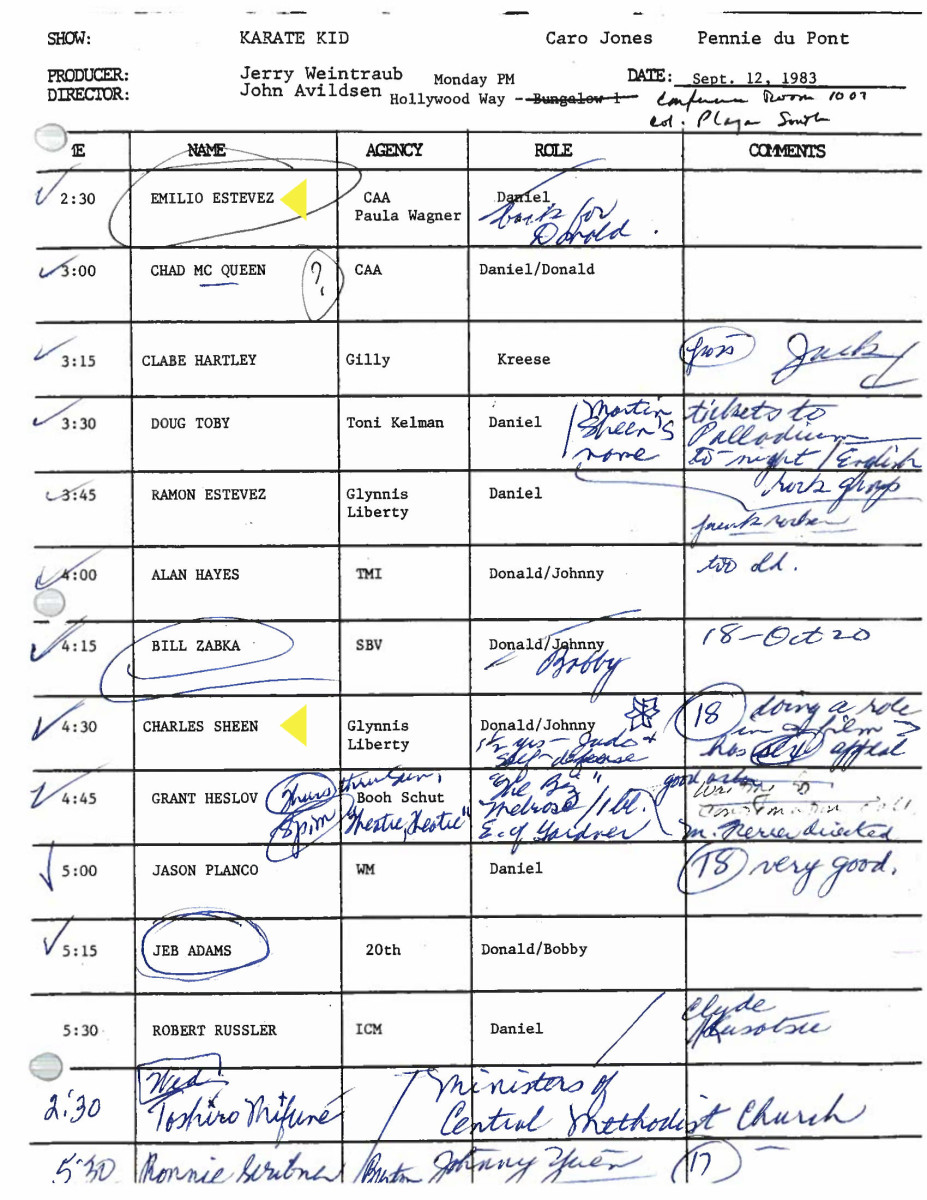 SHOW: KARATE KID Caro Jones Pennie du Pont
PRODUCER: Jerry Weintraub Monday PM DATE: Sept. 12, 1983
DIRECTOR: John Avildsen Hollywood Way -- Bungalow 1 Conference Room 1007
Col. Plaza South
NAME AGENCY ROLE COMMENTS
2:30 EMILIO ESTEVEZ CAA Daniel
Paula Wagner back for
Donald.
3:00 CHAD MC QUEEN ? CAA Daniel/Donald
3:15 CLABE HARTLEY Gilly Kreese
3:30 DOUG TOBY Toni Kelman Daniel Martin tickets to
Sheen's Palladium
name to-night / English
rock group
3:45 RAMON ESTEVEZ Glynnis Daniel
Liberty
4:00 ALAN HAYES TMI Donald/Johnny too old.
4:15 BILL ZABKA SBV Donald/Johnny 18-Oct 20
Bobby
4:30 CHARLES SHEEN Glynnis Donald/Johnny 18 doing a role
Liberty 1½ yrs - Judo + in a film
self-defense has appeal
4:45 GRANT HESLOV Thurs thru Sun, "The Big"
8pm Booh Schut Melrose / 1 bl.
"Theatre, Theatre" E. of Gardner directed
5:00 JASON PLANCO WM Daniel 18 very good.
5:15 JEB ADAMS 20th Donald/Bobby
5:30 ROBERT RUSSLER ICM Daniel Clyde
Kusatsu
Wed
2:30 Toshiro Mifune Ministers of
Central Methodist Church
5:30 Ronnie Burton Johnny Yuen 17